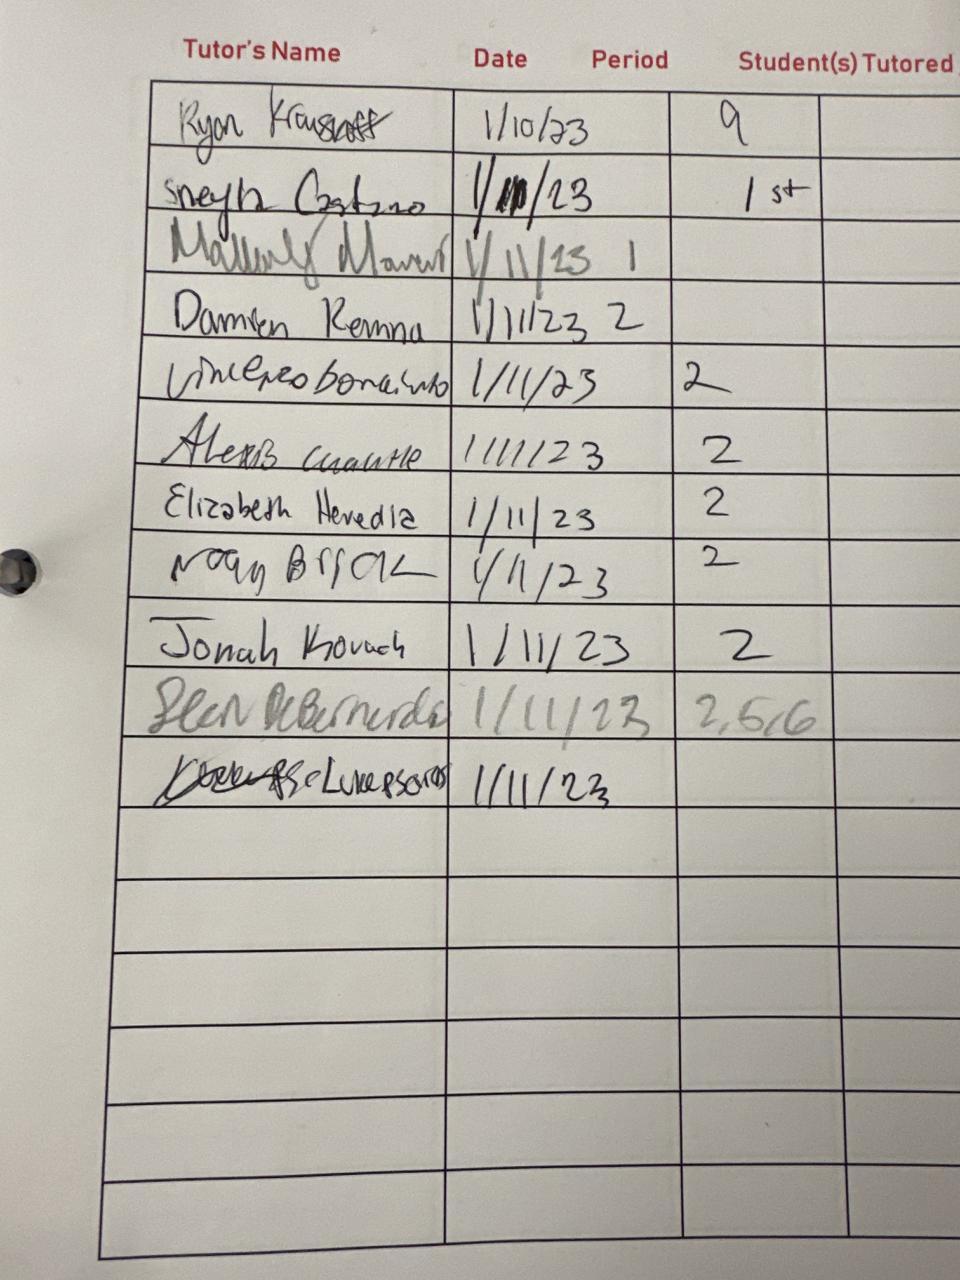 Tutor's Name Date Period Student(s) Tutored
Ryan 1/10/23 9
1/11/23 1st
1/11/23 1
Damien Remna 1/11/23 2
1/11/23 2
Alexis cuautle 1/11/23 2
Elizabeth Heredia 1/11/23 2
Noah 1/11/23 2
Jonah Kovach 1/11/23 2
Sean DeBernardo 1/11/23 2,5,6
1/11/23